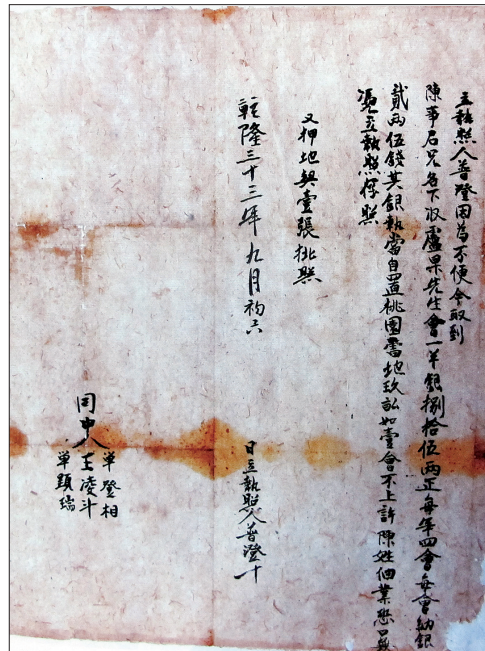 立執照人普澄因為不便今取到
陳芳君兄名下收盧果先生會一半銀捌拾伍兩正每年四會每會納銀
貳兩伍錢其銀執當自置桃園霤地玖畝如壹會不上許陳姓佃業恐口無
憑立執照存照
又押地契壹張批照
乾隆三十三年九月初六
日立執照人普澄十
同中人
單登相
王凌斗
單顕瑞